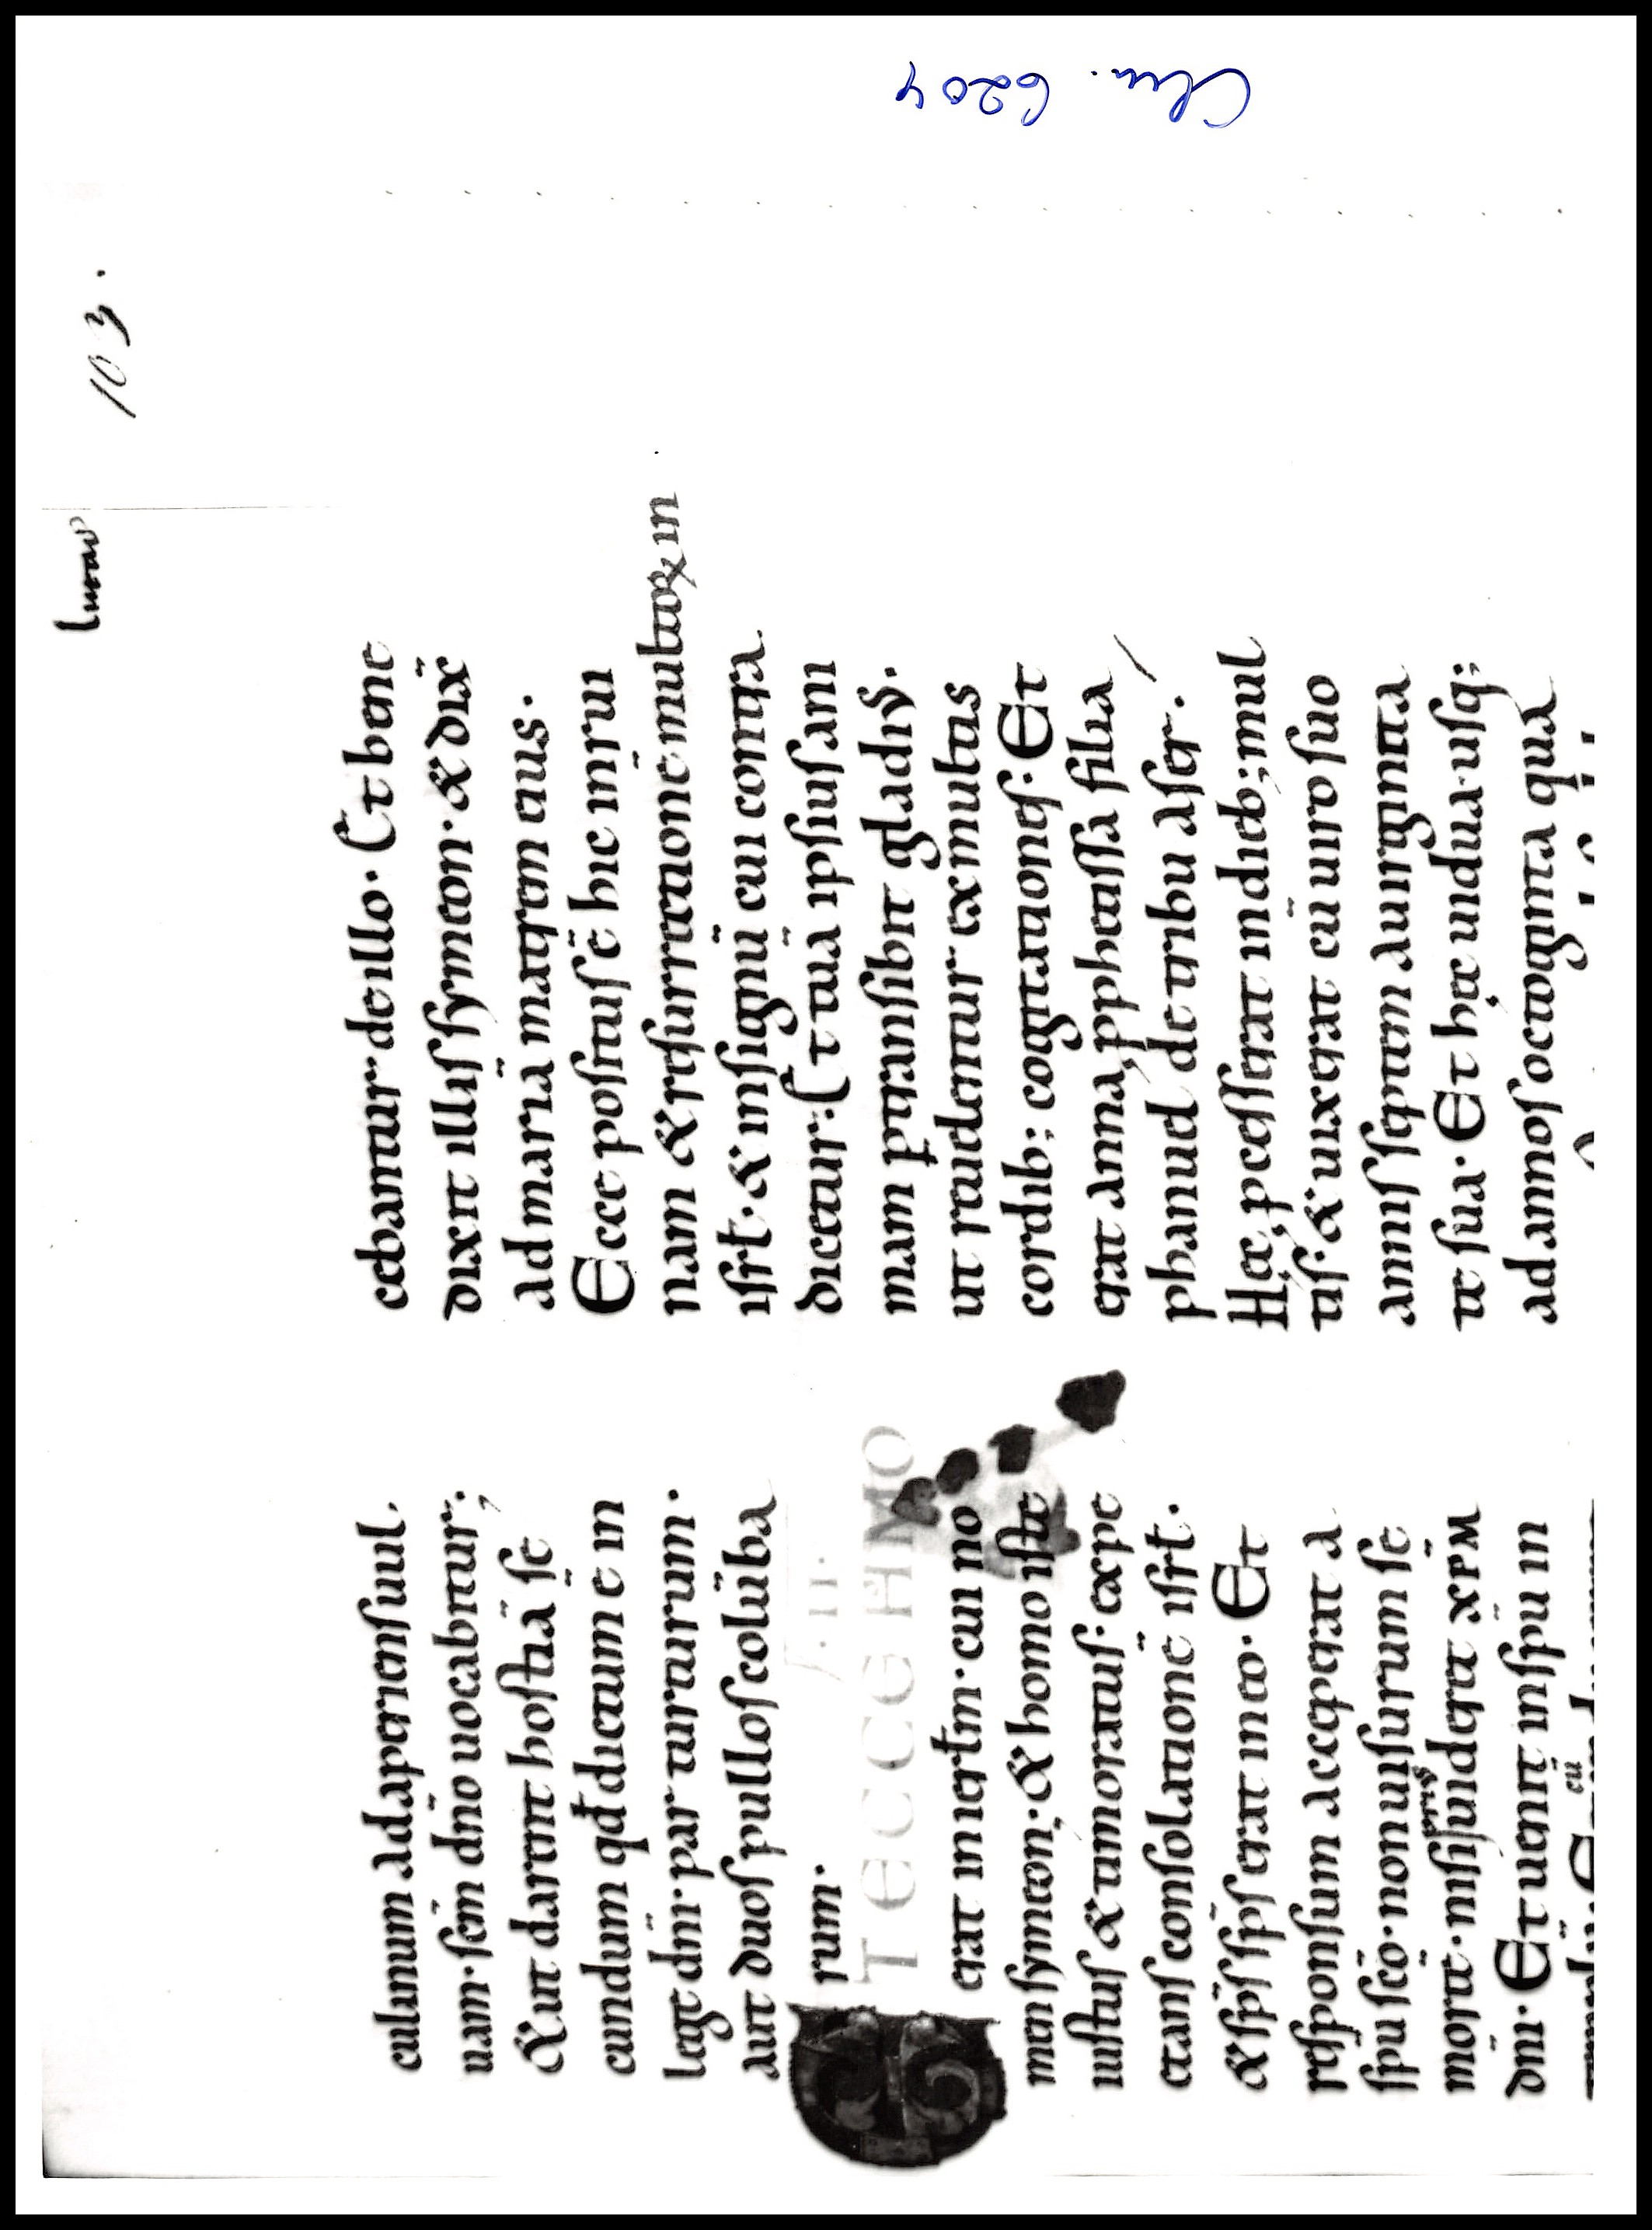 lucas
103.
culinum adaperiensuul,
uam· scm̄ dn̄o uocabitur;
&̈ut darent hostiā se
cundum qd̄ dictum ē in
lege dn̄i· par turturum·
aut duos pullos colūba
rum·
·II·
T ECCE HMO
erat in ierlm̄· cui no
men symeon; &̈ homo iste
iustus &̈ timoratus· expe
ctans consolationē isrl·
&̈ sp̄s sc̄s erat in eo· Et
responsum acceperat a
sp̄u sc̄o· non uisurum se
mortē· nisi uideret xpm̄
prius
dn̄i· Et uenit in sp̄u in
cū
cebantur de illo· Et bene
dixit illis symeon· &̈ dix̄
ad mariā matrem eius·
Ecce positus ē hic in rui
nam &̈ resurrectionē multor& in
isrl· &̈ insignū cui contra
dicetur· Et tuā ipsius ani
mam ptransibit gladiꝰ·
ut reuelentur ex multis
cordib; cogitationes· Et
erat anna, ꝓphetissa filia
phanuel de tribu aser·
Hęc, ꝓcesserat in dieb; mul
tis· &̈ uixerat cū uiro suo
annis septem a uirginita
te sua· Et hęc uidua· usq;
ad annos octoginta qua
Clm. 6204